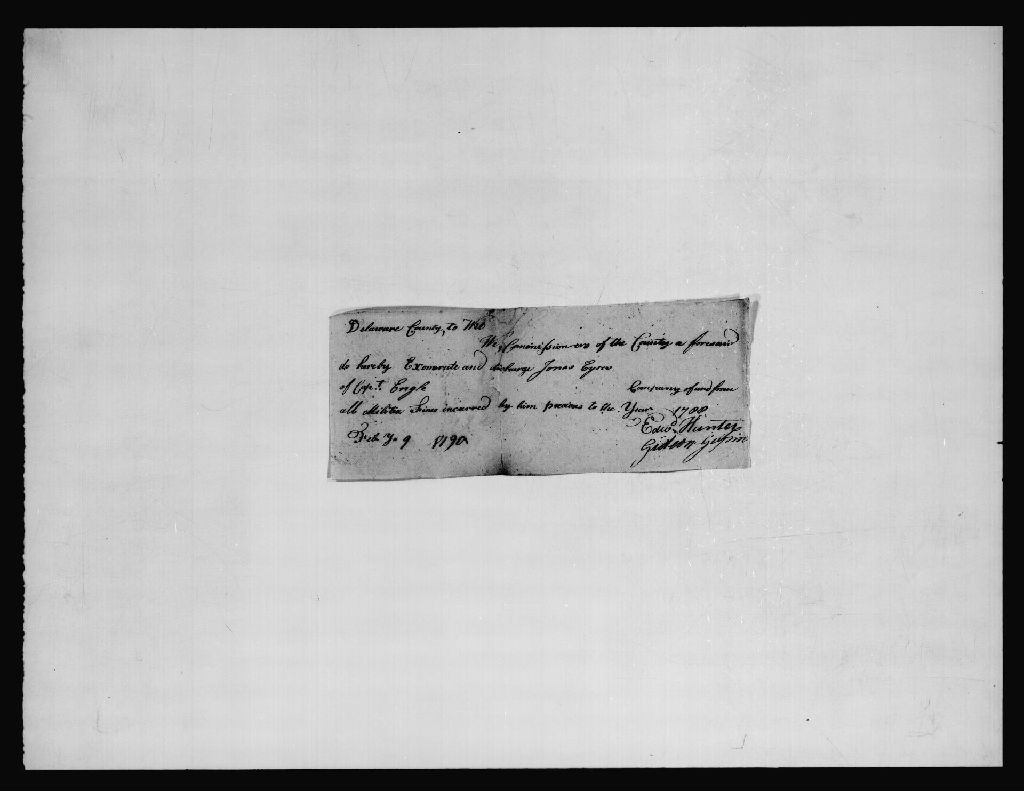 Delaware County, to Wit
We, Commissioners of the County a foresaid
do hereby Exonerate and discharge Jonas Eyres
of Capt. Engle Company of and from
all Militia Fines incurred by him previous to the Year 1788
Feb ye 9 1790
Edwd. Hunter